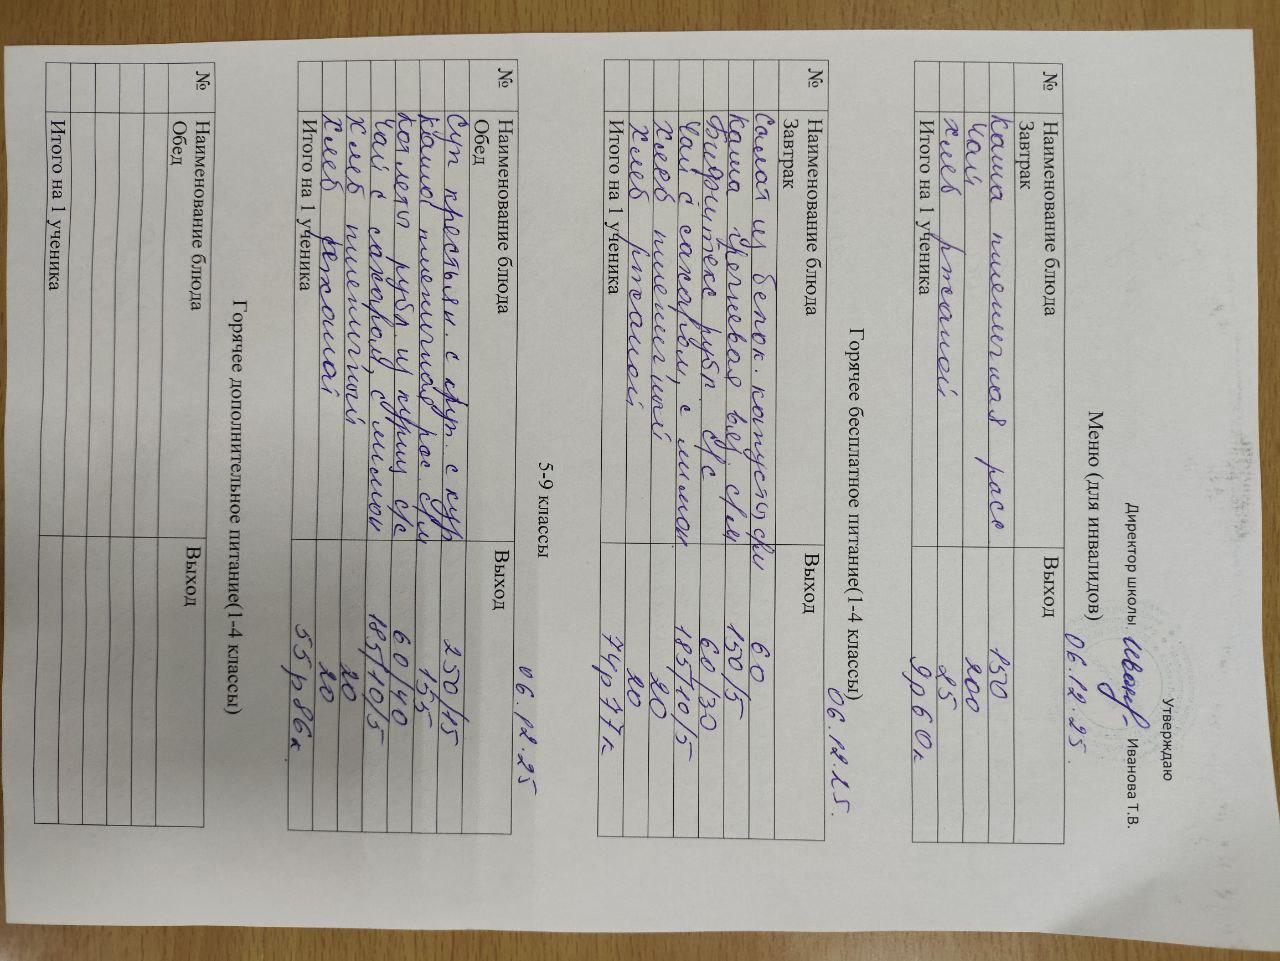 Утверждаю
Директор школы Иванова Т.В.
Меню (для инвалидов)
06.12.25.
№ Наименование блюда Выход
Завтрак
каша пшеничная расс 150
чай 200
хлеб ржаной 25
Итого на 1 ученика 9р60к
Горячее бесплатное питание(1-4 классы)
06.12.25.
№ Наименование блюда Выход
Завтрак
Салат из белок. капусты с/м 60
каша гречневая вяз. с/м 150/5
Бифштекс рубл. с/с 60/30
Чай с сахаром, с лимон 185/10/5
Хлеб пшеничный 20
хлеб ржаной 20
Итого на 1 ученика 74р77к
5-9 классы
06.12.25
№ Наименование блюда Выход
Обед
Суп крестьян. с круп. с кур 250/15
каша пшеничная рас с/м 155
котлеты рубл из куриц с/с 60/40
Чай с сахаром, с лимон 185/10/5
Хлеб пшеничный 20
Хлеб ржаной 20
Итого на 1 ученика 55р86к.
Горячее дополнительное питание(1-4 классы)
№ Наименование блюда Выход
Обед
Итого на 1 ученика